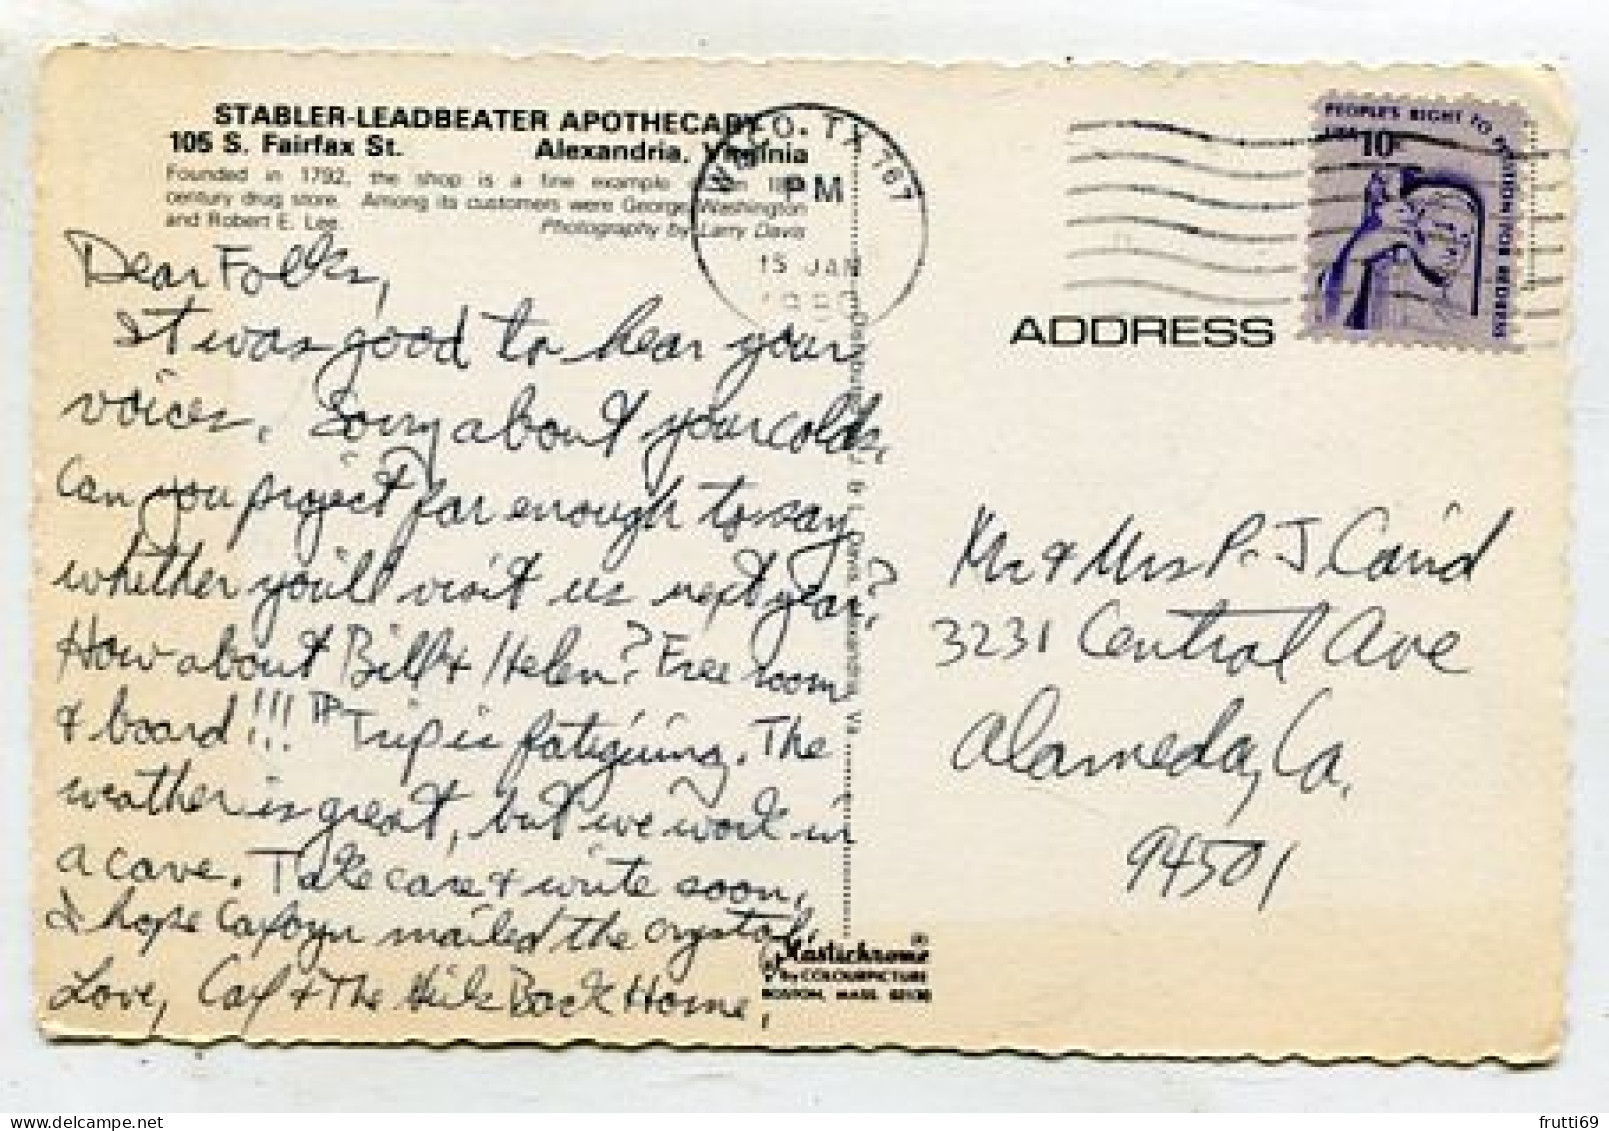 STABLER-LEADBEATER APOTHECARY
105 S. Fairfax St. Alexandria, Virginia
Founded in 1792, the shop is a fine example
century drug store. Among its customers were George Washington
and Robert E. Lee. Photography by Larry Davis
WACO, TX 767
PM
15 JAN
1980
PEOPLE'S RIGHT TO PETITION FOR REDRESS
USA 10c
ADDRESS
Dear Folks,
It was good to hear your
voices. Sorry about your colds.
Can you project far enough to say
whether you'll visit us next year?
How about Bill & Helen? Free room
& board!!! Trip is fatiguing. The
weather is great, but we work in
a cave. Take care & write soon.
I hope mailed the crystal.
Love, & The Back Home,
Mr & Mrs P. J Caird
3231 Central Ave
Alameda, Ca.
94501
Distributed by L. Davis, Alexandria, Va.
Plastichrome ®
by COLOURPICTURE
BOSTON, MASS. 02130
frutti69